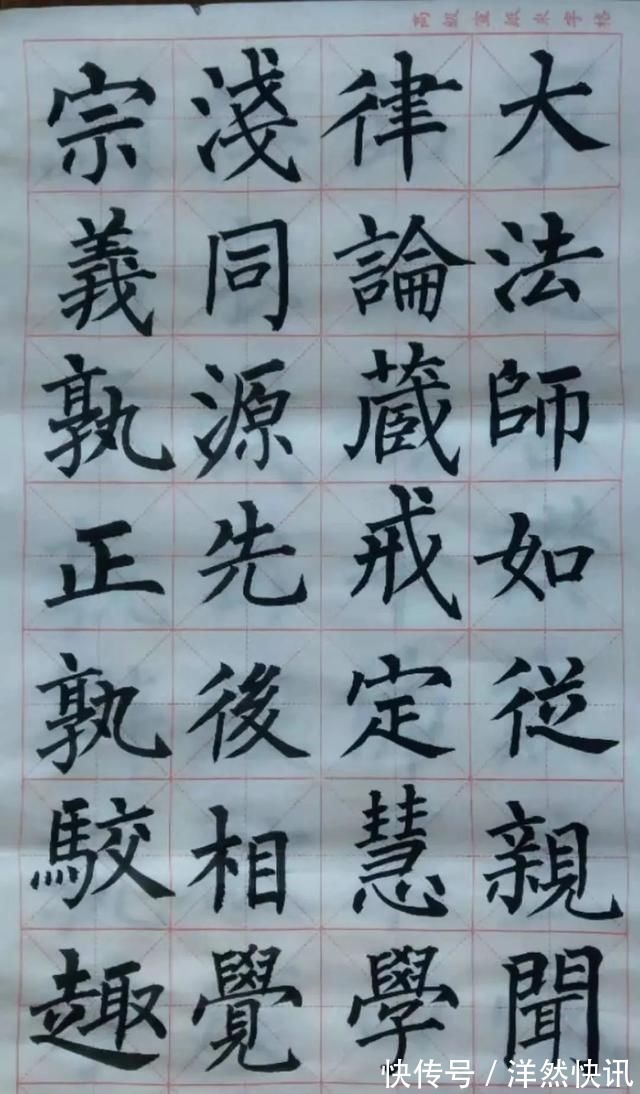 米字格
大法師如従親聞
律論蔵戒定慧學
淺同源先後相覺
宗義孰正孰駮趣
快传号/洋然快讯